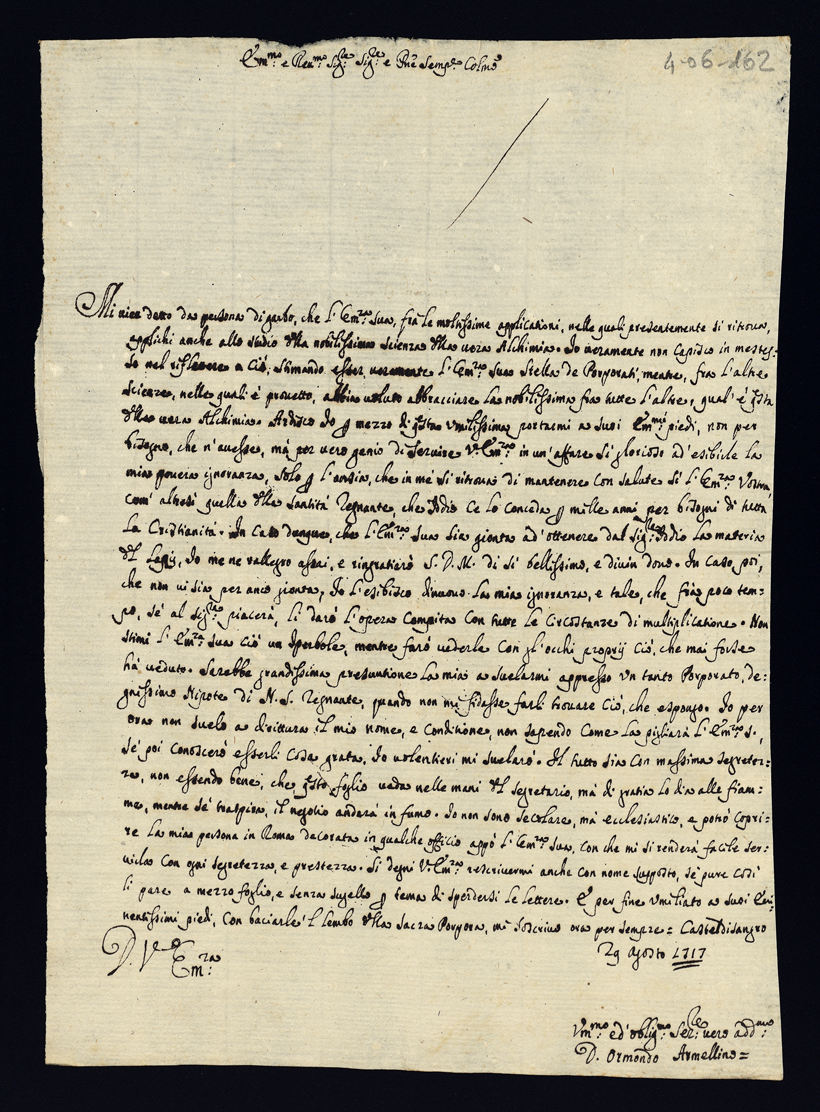 Em.mo e Reu.mo Sig.re Sig.re e Pne Semp.e Colmo
4-06-162
Mi vien detto da persona di garbo, che l'Em.za Sua, frà le moltissime applicationi, nelle quali presentemente si ritroua,
applichi anche allo studio della nobilissima scienza della uera Alchimia. Io ueramente non capisco in mestes=
so nel riflettere a ciò, stimando esser ueramente l'Em.za Sua Stella de Porporati, mentre, fra l'altre
scienze, nelle quali è prouetto, abbia uoluto abbracciare la nobilissima fra tutte l'altre, qual'è questa
della uera Alchimia. Ardisco Io p mezzo di questa umilissima portarmi a suoi Em.mi piedi, non per
bisogno, che n'auesse, mà per uero genio di seruire V. Em.za in un'affare si glorioso ad'esibirle la
mia pouera ignoranza, solo p l'ansia, che in me si ritroua di mantenere con salute si l'Em.za Vostra,
com'altresi quella della Santità Regnante, che Iddio ce lo conceda p mille anni per bisogni di tutta
la Cristianità. In caso dunque, che l'Em.za Sua sia gionta ad'ottenere dal Sig.re Iddio la materia
del Lapis, Io me ne rallegro assai, e ringratierò S. D. M. di si bellissimo, e diuin dono. In caso, poi,
che non ui sia per anco gionta, Io l'esibisco dinuouo la mia ignoranza, e tale, che frà poco tem=
po, se al Sig.re piacerà, li darò l'opera compita con tutte le circostanze di multiplicatione. Non
stimi l'Em.za Sua ciò un Iperbole, mentre farò uederle con gl'occhi proprij ciò, che mai forse
hà ueduto. Sarebbe grandissima presuntione la mia a suelarmi appresso un tanto Porporato, de=
gnissimo Nipote di N. S. Regnante, quando non mi fidasse farli trouare ciò, che espongo. Io per
ora non suelo a dirittura il mio nome, e conditione, non sapendo come la pigliarà l'Em.za S.,
se poi conoscerò esserli cosa grata, Io uolentieri mi suelarò. Il tutto sia con massima segretez=
za, non essendo bene, che questo foglio uada nelle mani del segretario, mà di gratia lo dia alle fiam=
me, mentre se traspira, il negotio andarà in fumo. Io non sono secolare, mà ecclesiastico, e potrò copri=
re la mia persona in Roma decorata in qualche offitio appò l'Em.za Sua, con che mi si renderà facile ser=
uirla con ogni segretezza, e prestezza. Si degni V. Em.za rescriuermi anche con nome supposto, se pure così
li pare a mezzo foglio, e senza sugello p tema di sperdersi le lettere. E per fine umiliato a suoi Emi=
nentissimi piedi, con baciarle l lembo della sacra Porpora, mi soscriuo ora per sempre = Casteldisangro
29 Agosto 1717
D. V. Em.za
Um.mo ed'oblig.mo Ser.re uero add.mo
D. Ormondo Armellino=